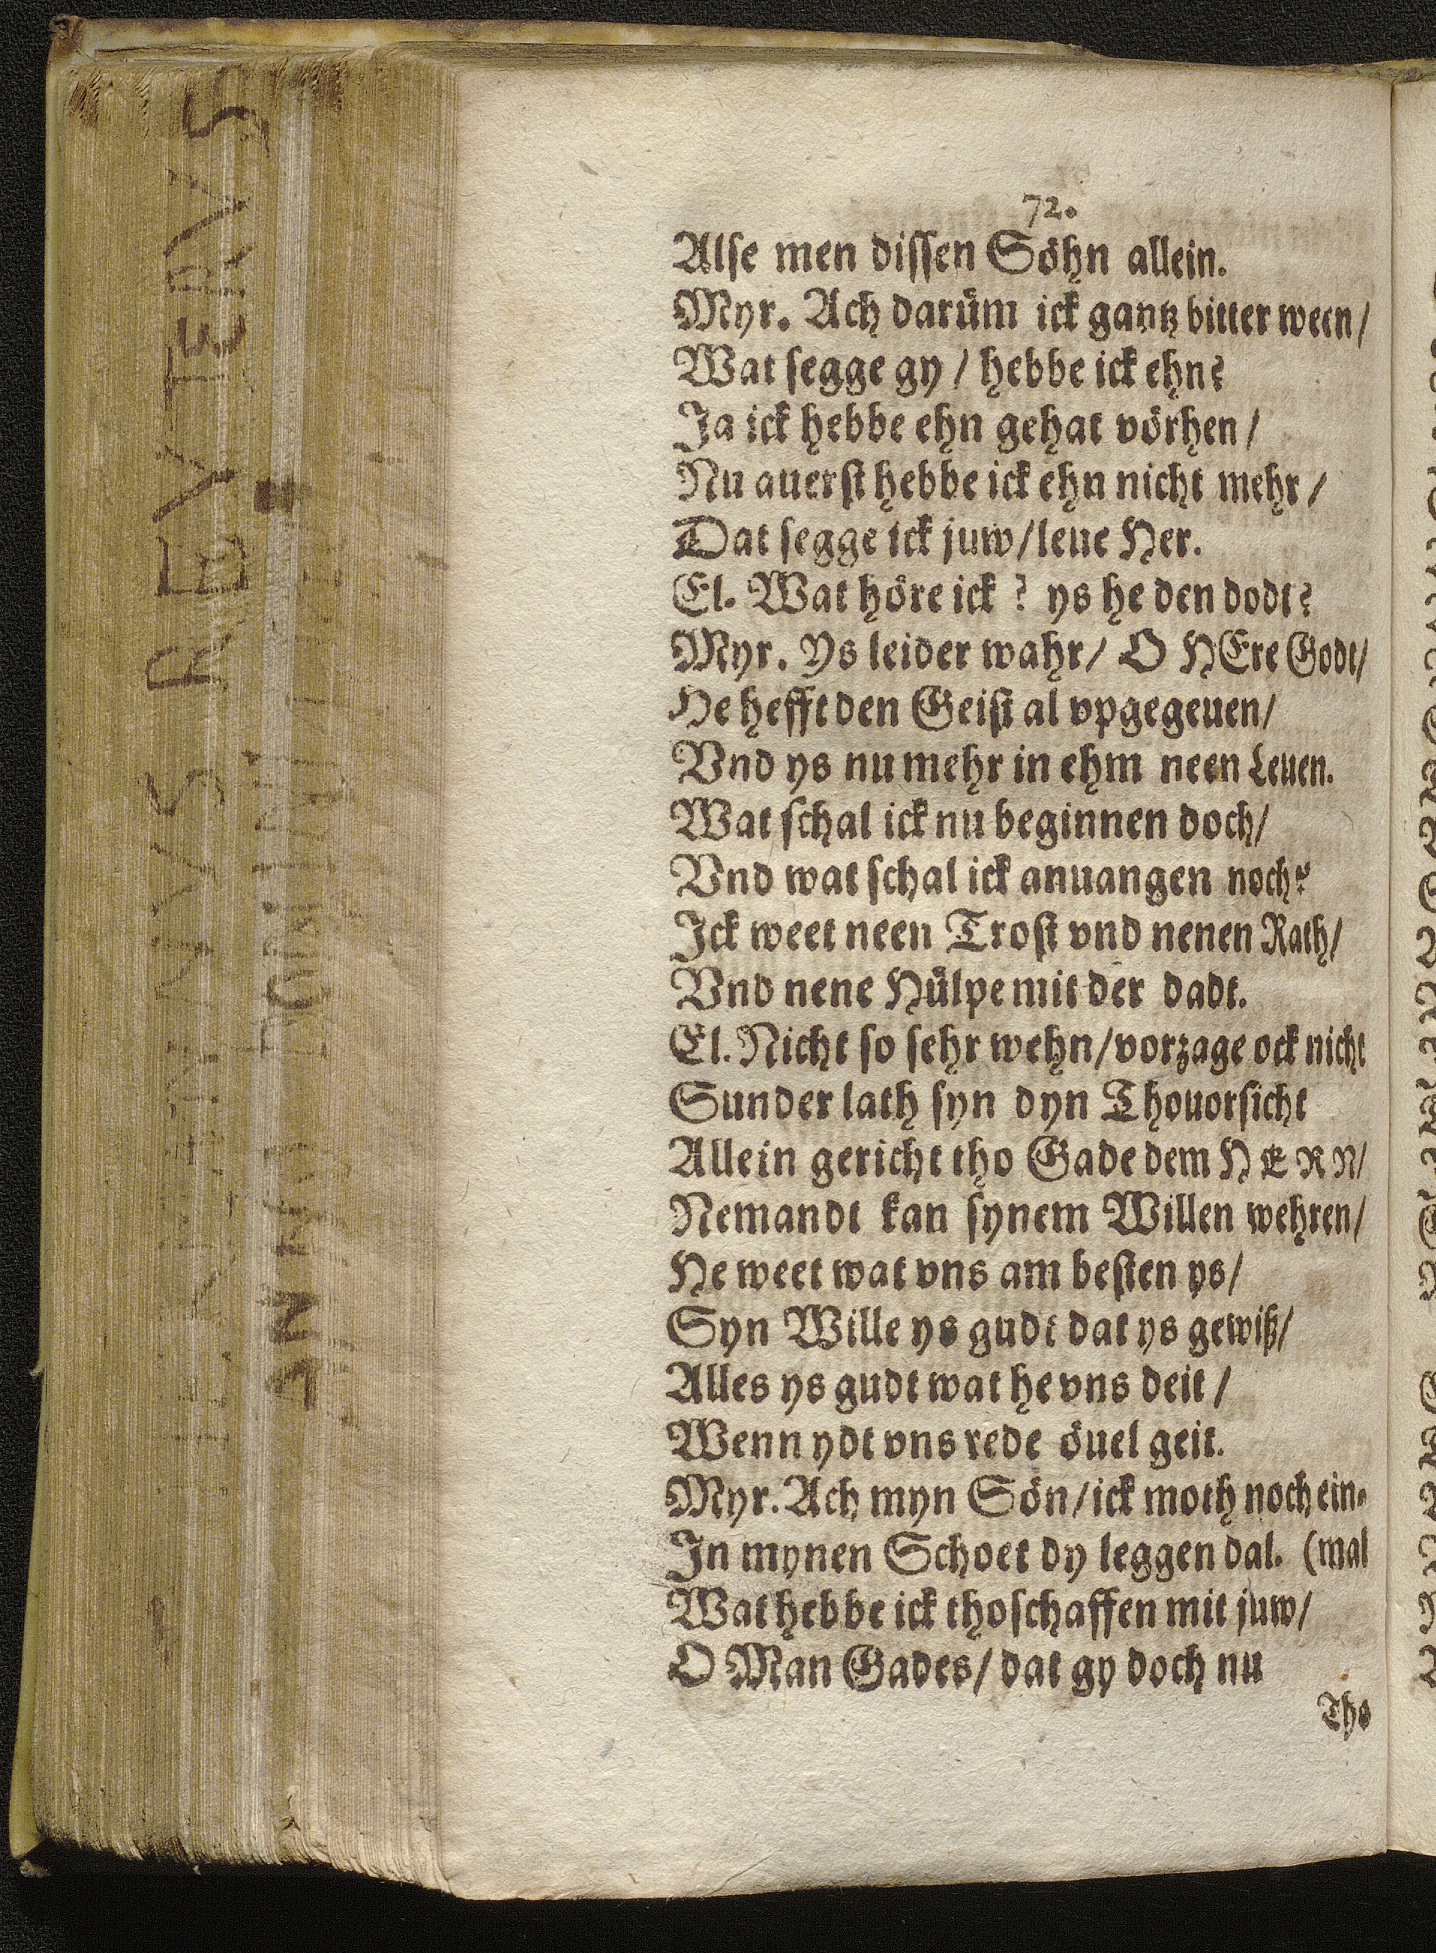 72.
Alse men dissen Söhn allein.
Myr. Ach darüm ick gantz bitter ween/
Wat segge gy / hebbe ick ehn?
Ja ick hebbe ehn gehat vörhen /
Nu auerst hebbe ick ehn nicht mehr /
Dat segge ick juw/leue Her.
El. Wat höre ick ? ys he den dodt?
Myr. Ys leider wahr/ O HEre Godt/
He hefft den Geist al vpgegeuen/
Vnd ys nu mehr in ehm neen Leuen.
Wat schal ick nu beginnen doch/
Vnd wat schal ick anuangen noch?
Ick weet neen Trost vnd nenen Rath/
Vnd nene Hülpe mit der dadt.
El. Nicht so sehr wehn/vorzage ock nicht
Sunder lath syn dyn Thouorsicht
Allein gericht tho Gade dem HERN/
Nemandt kan synem Willen wehren/
He weet wat vns am besten ys/
Syn Wille ys gudt dat ys gewiß/
Alles ys gudt wat he vns deit /
Wenn ydt vns rede öuel geit.
Myr. Ach myn Sön/ick moth noch ein-
In mynen Schoet dy leggen dal. (mal
Wat hebbe ick thoschaffen mit juw/
O Man Gades/ dat gy doch nu
Tho